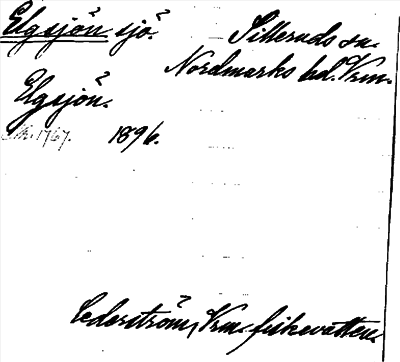 Elgsjön sjö? Silleruds sn.
Nordmarks hd. Vrm.
Elgsjön.
1767. 1896.
Cederström, Vrm. fiskevatten.